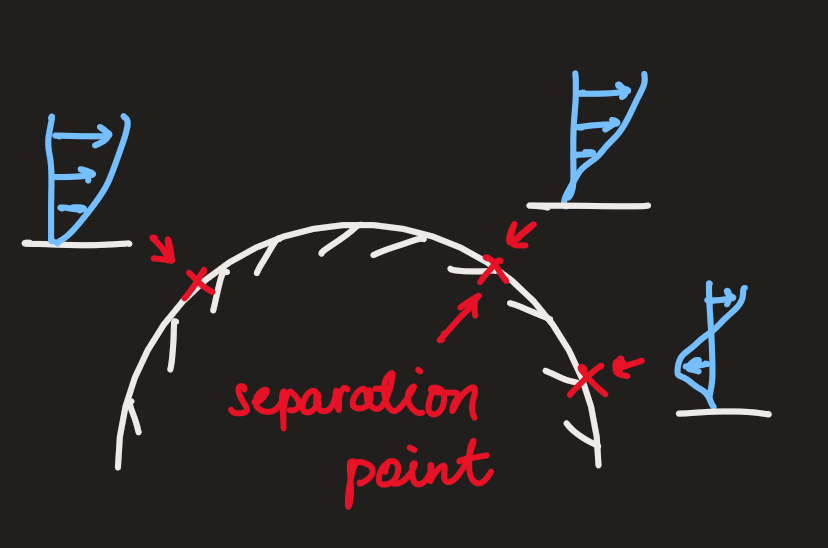 separation
point